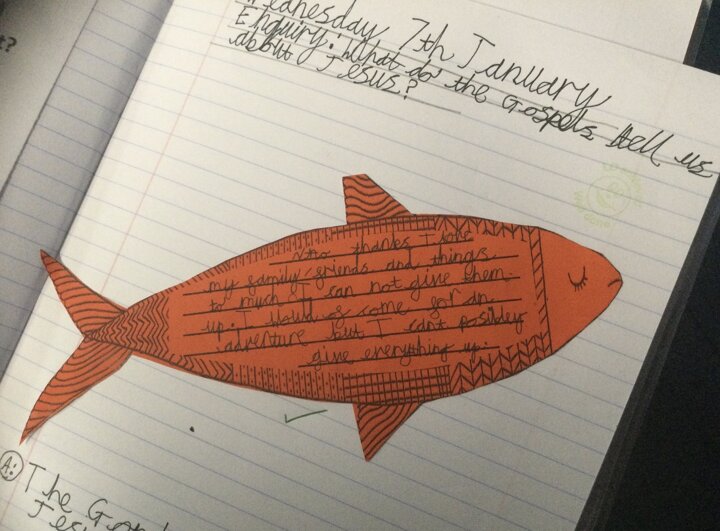 Wednesday 7th January
Enquiry: What do the Gospels tell us
about Jesus?
No thanks I love
my family friends and things
to much I can not give them
up. I would of come for an
adventure but I cant possibley
give everything up.
A:
The